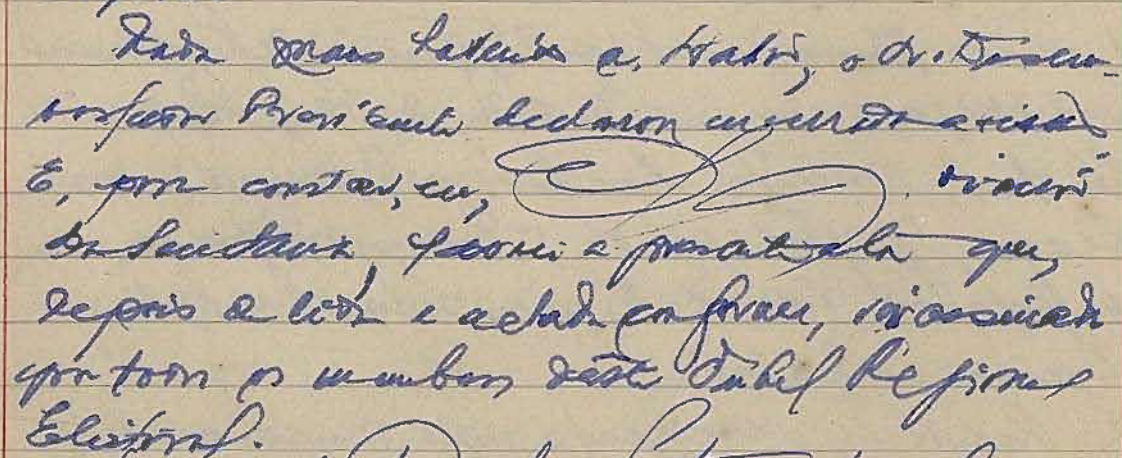 Nada mais havendo a tratar, o Dr. Desem-
bargador Presidente declarou encerrada a sessão
E, por constar, eu,
da Secretaria, lavrei a presente ata que,
depois de lida e achada conforme, vai assinada
por todos os membros dêste Tribunal Regional
Eleitoral.